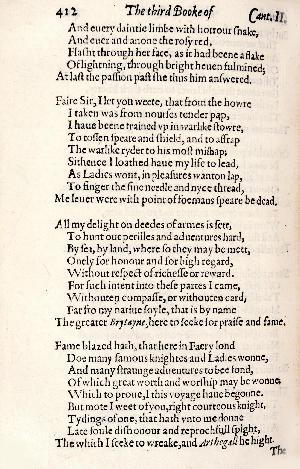 412 The third Booke of Cant. II.
And euery daintie limbe with horrour shake,
And euer and anone the rosy red,
Flasht through her face, as it had beene a flake
Of lightning, through bright heuen fulmined;
At last the passion past she thus him answered.
Faire Sir, I let you weete, that from the howre
I taken was from nourses tender pap,
I haue beene trained vp in warlike stowre,
To tossen speare and shield, and to affrap
The warlike ryder to his most mishap;
Sithence I loathed haue my life to lead,
As Ladies wont, in pleasures wanton lap,
To finger the fine needle and nyce thread;
Me leuer were with point of foemans speare be dead.
All my delight on deedes of armes is sett,
To hunt out perilles and aduentures hard,
By sea, by land, where so they may be mett,
Onely for honour and for high regard,
Without respect of richesse or reward.
For such intent into these partes I came,
Withouten compasse, or withouten card,
Far fro my natiue soyle, that is by name
The greater Brytayne, here to seeke for praise and fame.
Fame blazed hath, that here in Faery lond
Doe many famous knightes and Ladies wonne,
And many straunge aduentures to bee fond,
Of which great worth and worship may be wonne;
Which to proue, I this voyage haue begonne.
But mote I weet of you, right courteous knight,
Tydings of one, that hath vnto me donne
Late foule dishonour and reprochfull spight,
The which I seeke to wreake, and Arthegall he hight.
The